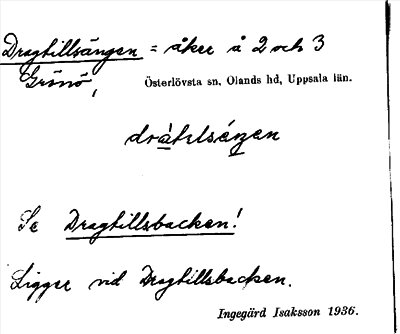 Dragtillsängen = åker å 2 och 3
Grönö, Österlövsta sn, Olands hd, Uppsala län.
Se Dragtillsbacken!
Ligger vid Dragtillsbacken.
Ingegärd Isaksson 1936.